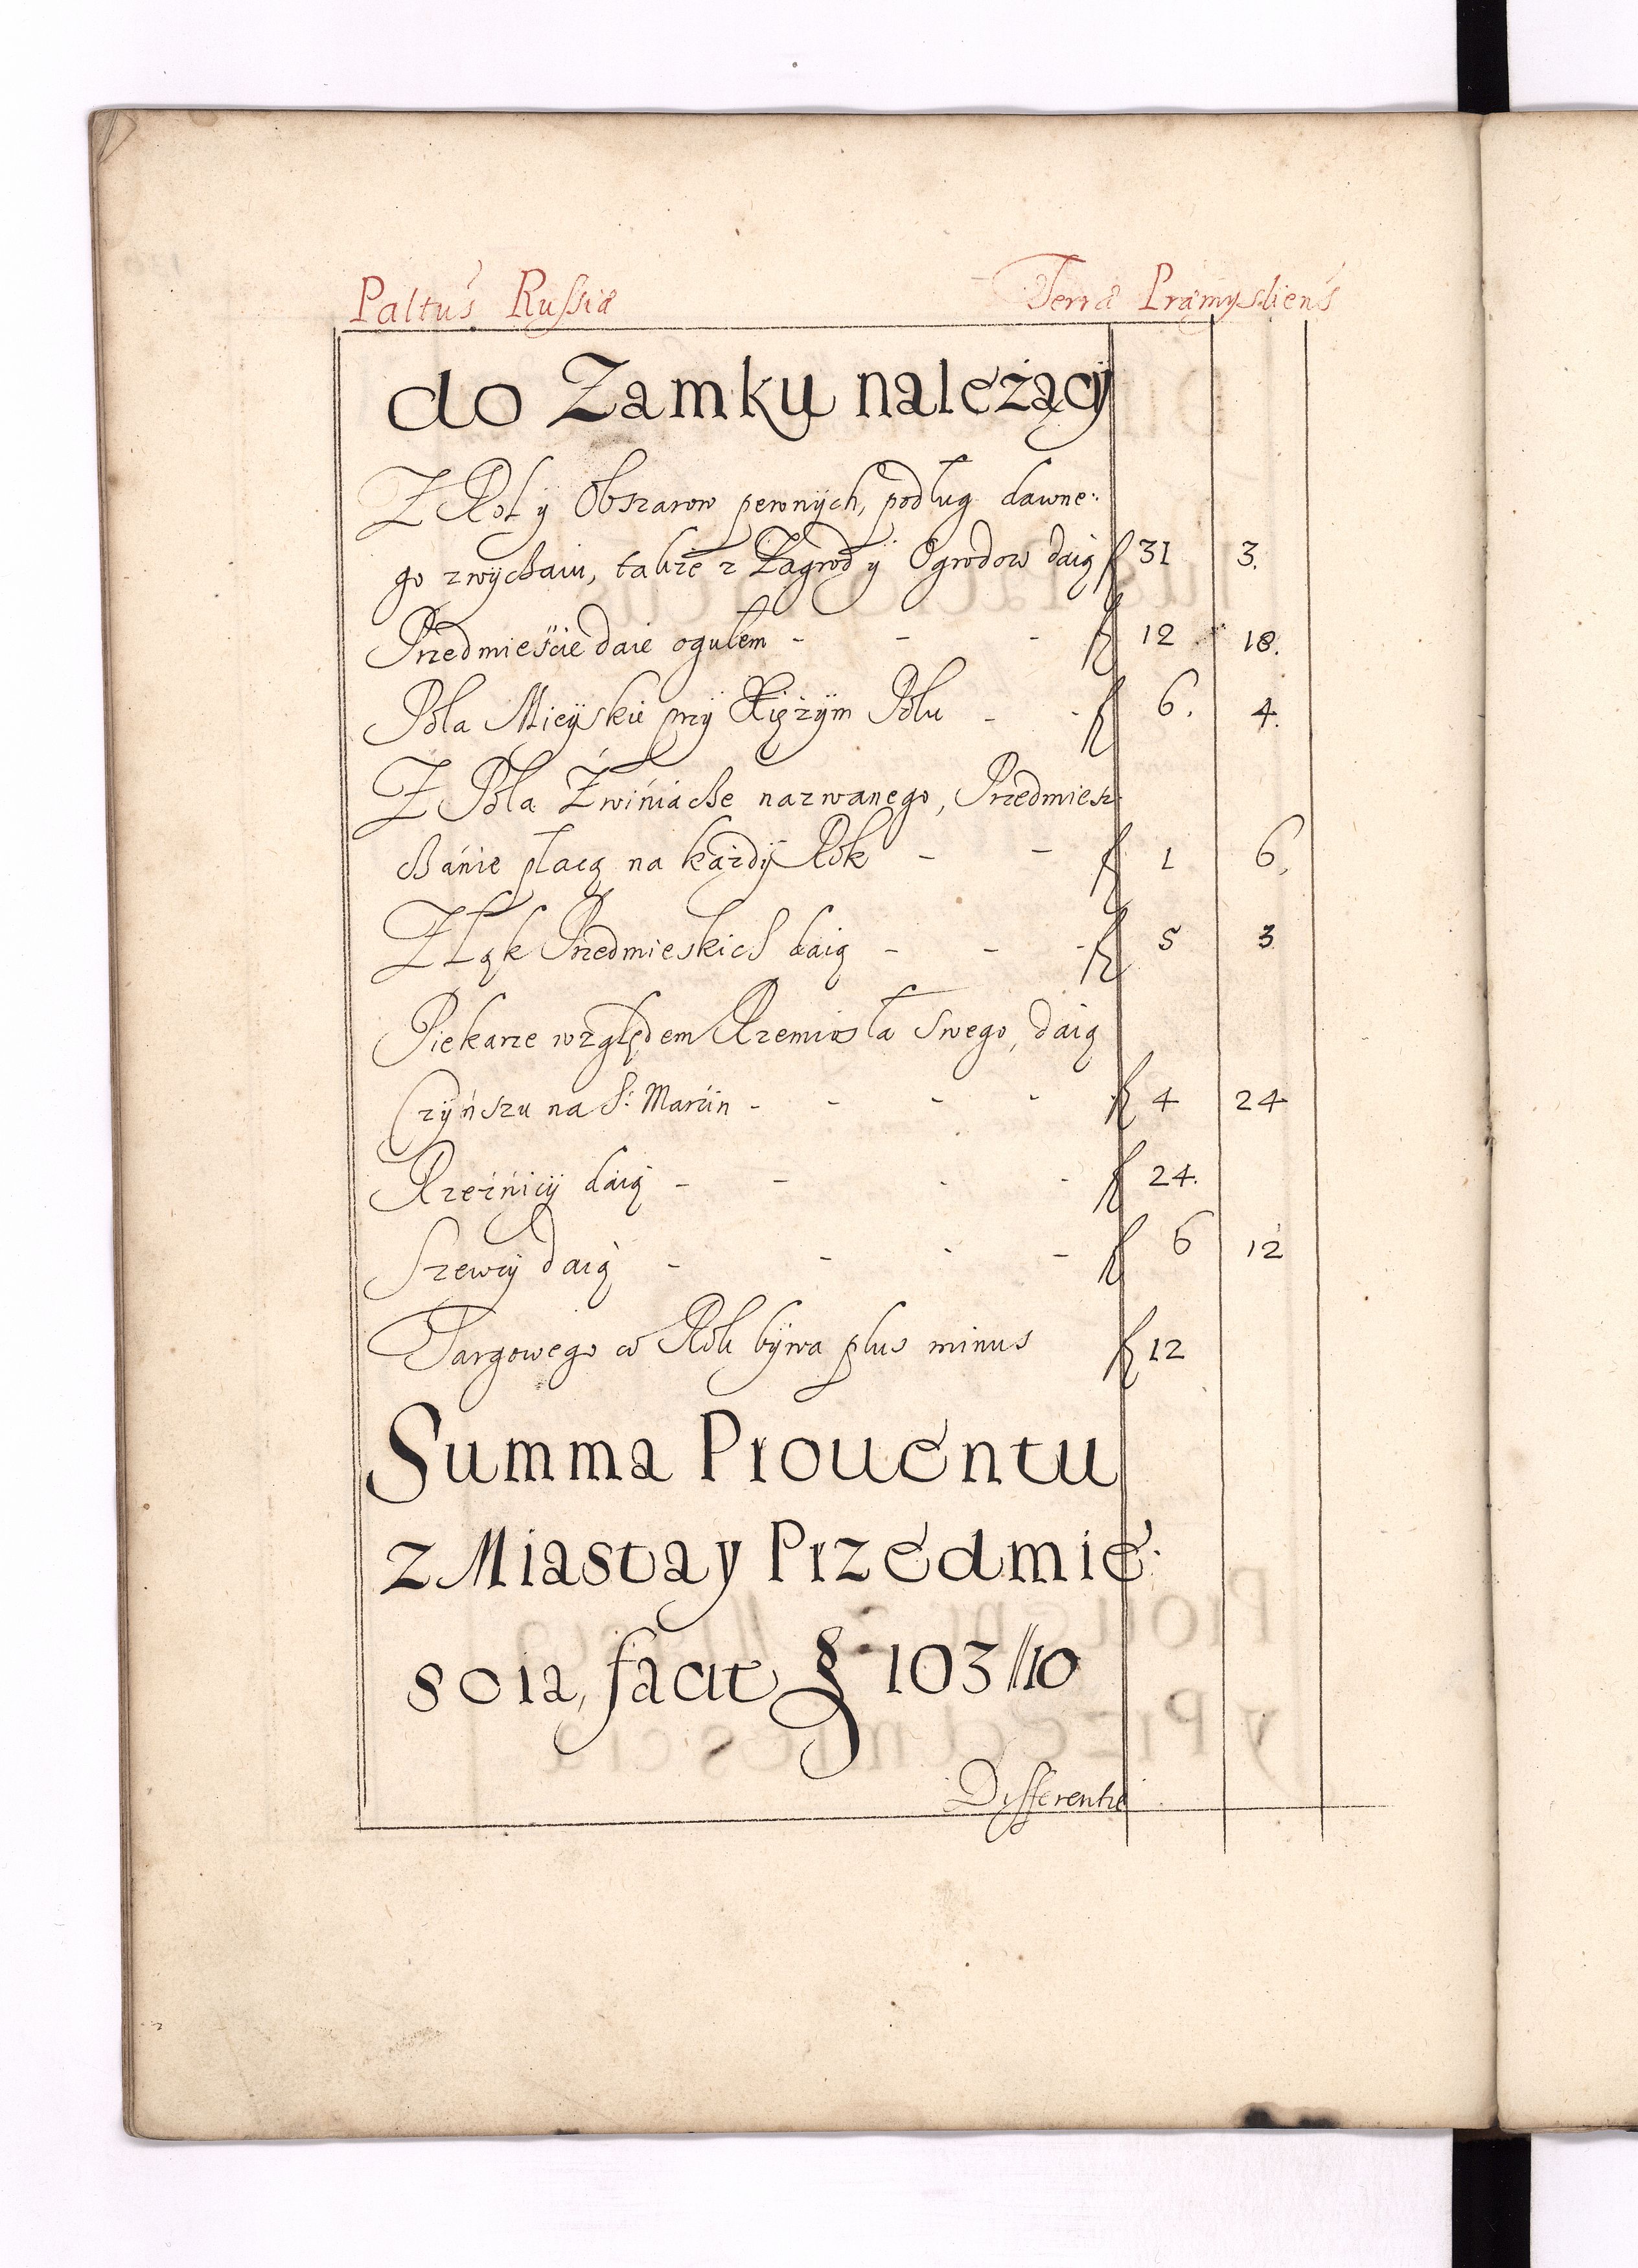 Paltus Russiæ Terræ Præmysliens
do Zamku należący
Z Rol y Obszarow pewnych, podług dawne:
go zwyczaiu, także z Zagrod y Ogrodow daią f 31 3.
Przedmieście daie ogułem - - - f 12 18.
Pola Mieyskie przy Xiężym Polu - - f 6. 4.
Z Pola Zwiniacze nazwanego, Przedmiesz
czanie płacą na każdy Rok - - f 1 6.
Z Łąk Przedmieskich daią - - - f 5 3
Piekarze względem Rzemiosła swego, daią
Czynszu na S: Marcin - - - - f 4 24
Rzeźnicy daią - - - - f 24.
Szewcy daią - - - - f 6 12
Targowego co Rok bywa plus minus f 12
Summa Prouentu
z Miasta y Przedmie:
scia, facit f 103//10
Differentia